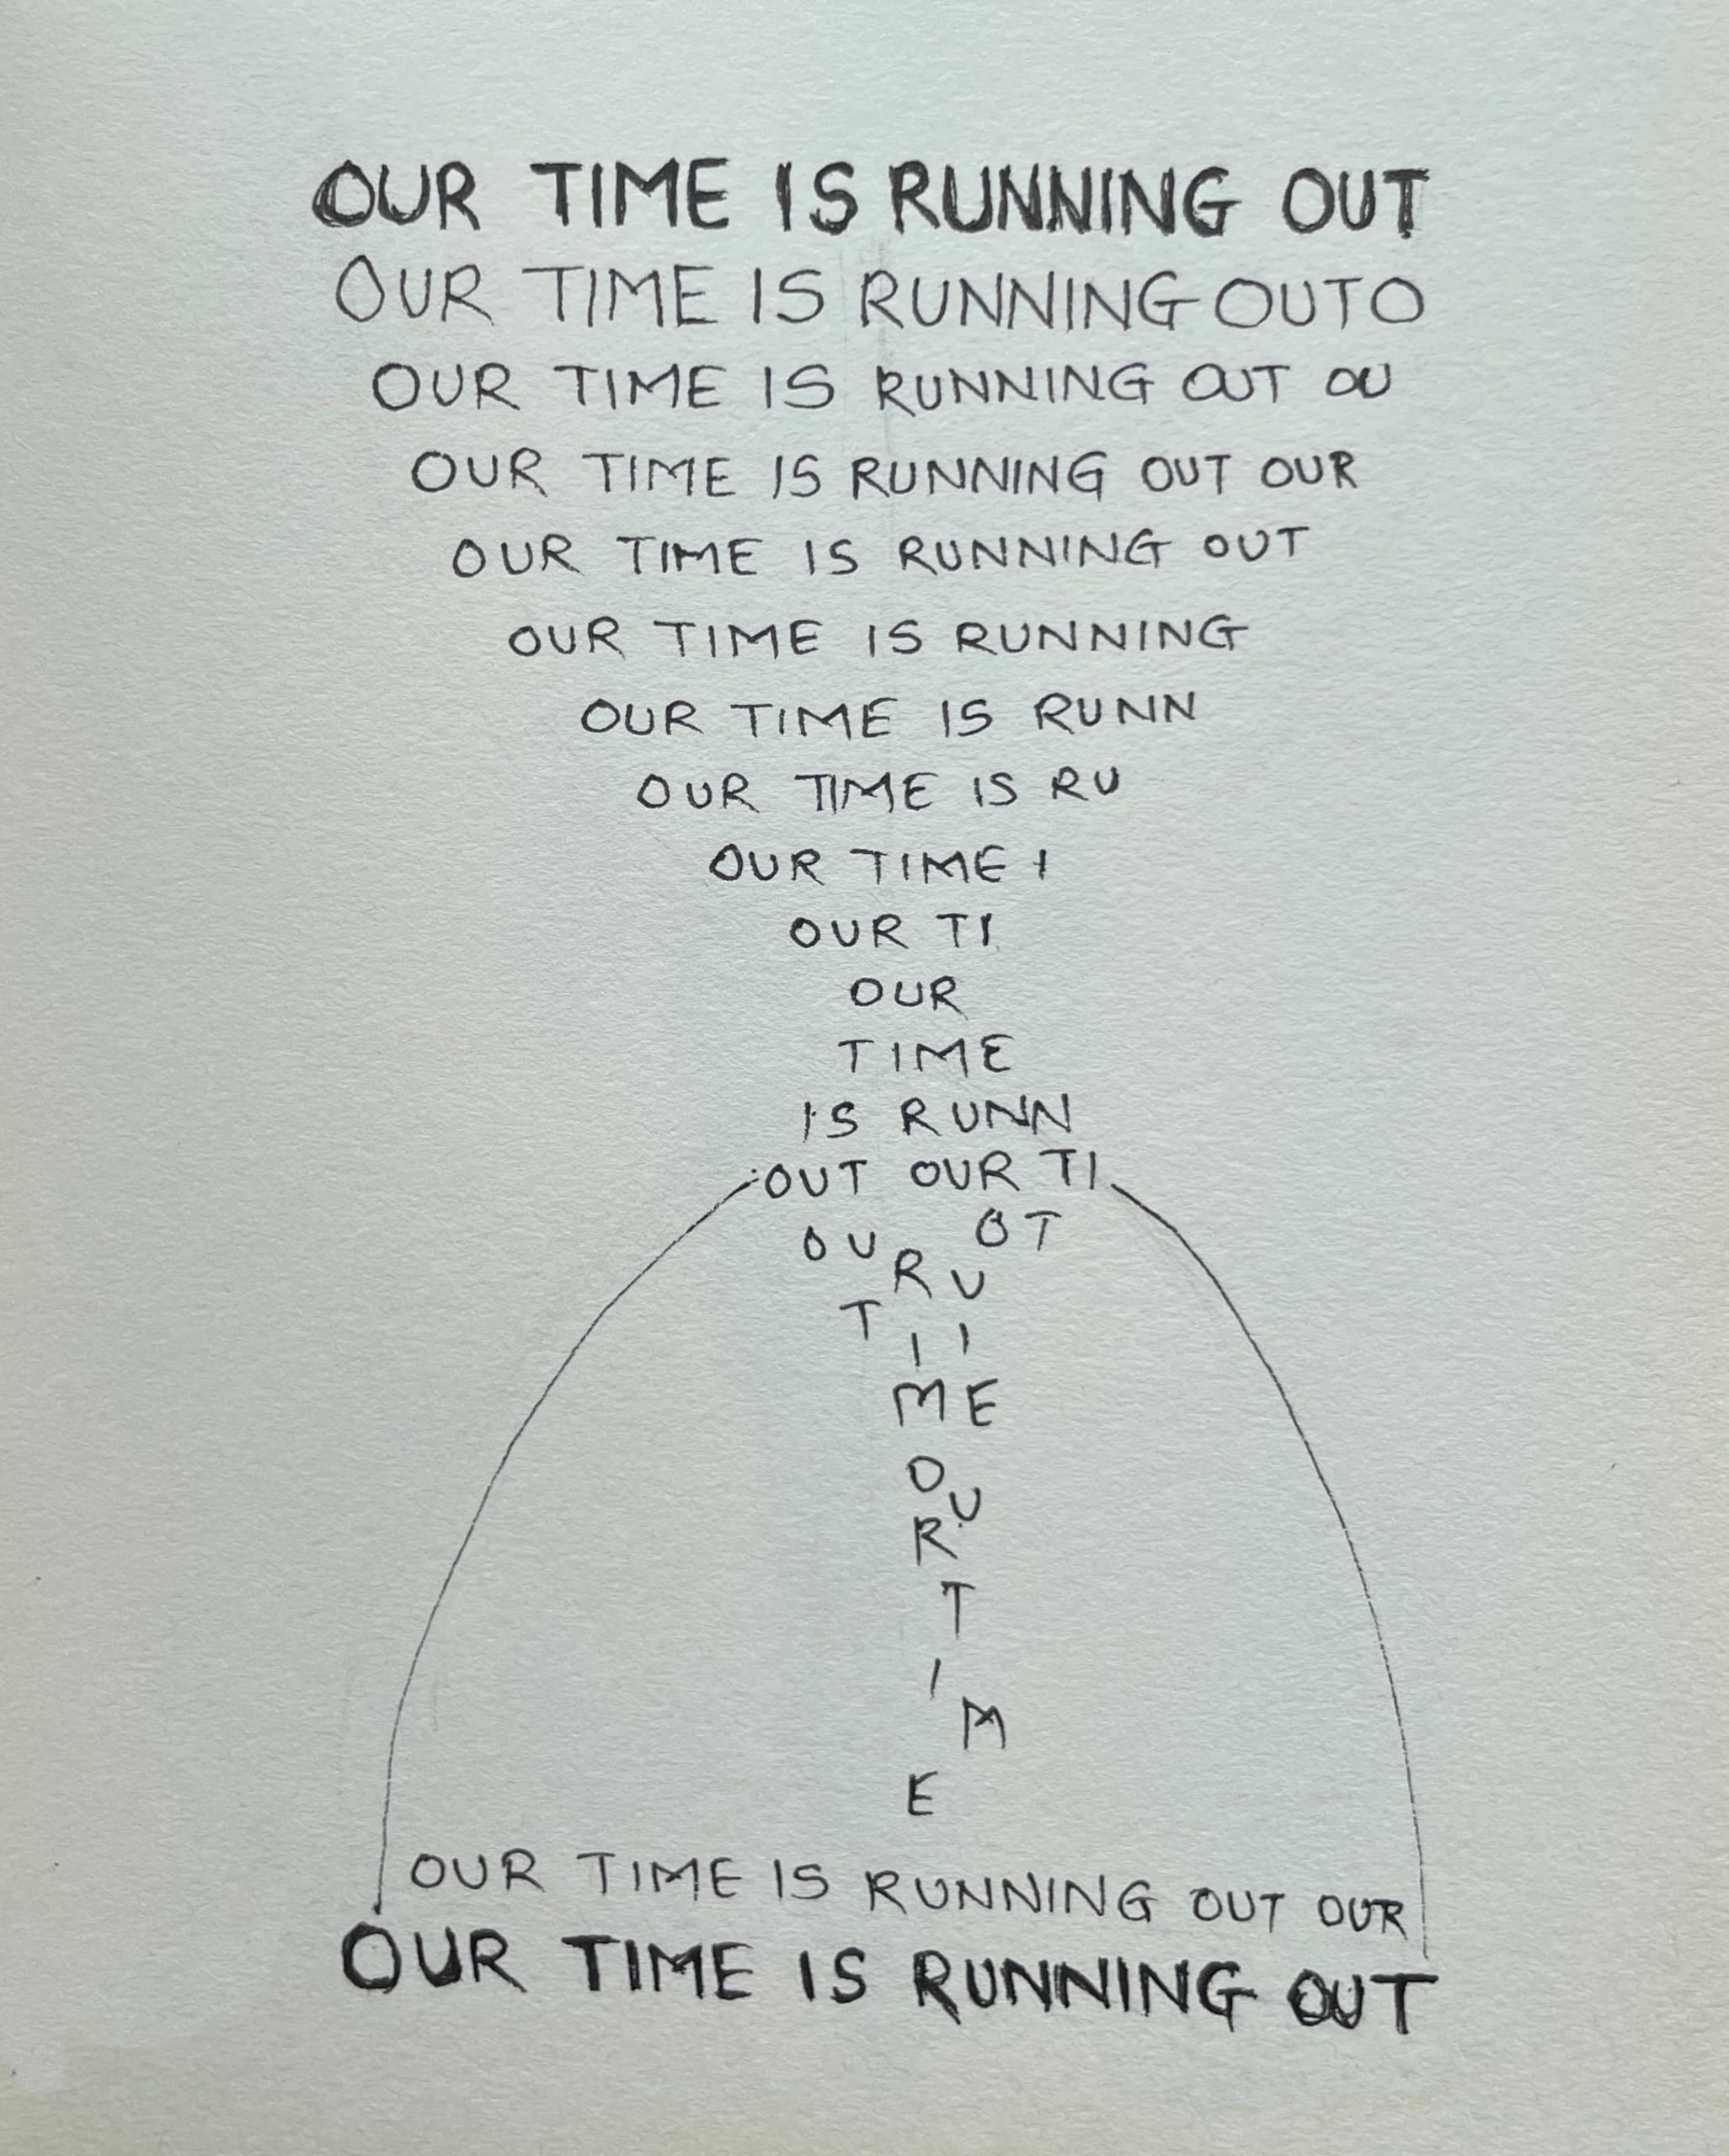 OUR TIME IS RUNNING OUT
OUR TIME IS RUNNING OUTO
OUR TIME IS RUNNING OUT OU
OUR TIME IS RUNNING OUT OUR
OUR TIME IS RUNNING OUT
OUR TIME IS RUNNING
OUR TIME IS RUNN
OUR TIME IS RU
OUR TIME I
OUR TI
OUR
TIME
IS RUNN
OUT OUR TI
OU OT
R U
T
I I
M E
O
U
R
T
I
M
E
OUR TIME IS RUNNING OUT OUR
OUR TIME IS RUNNING OUT